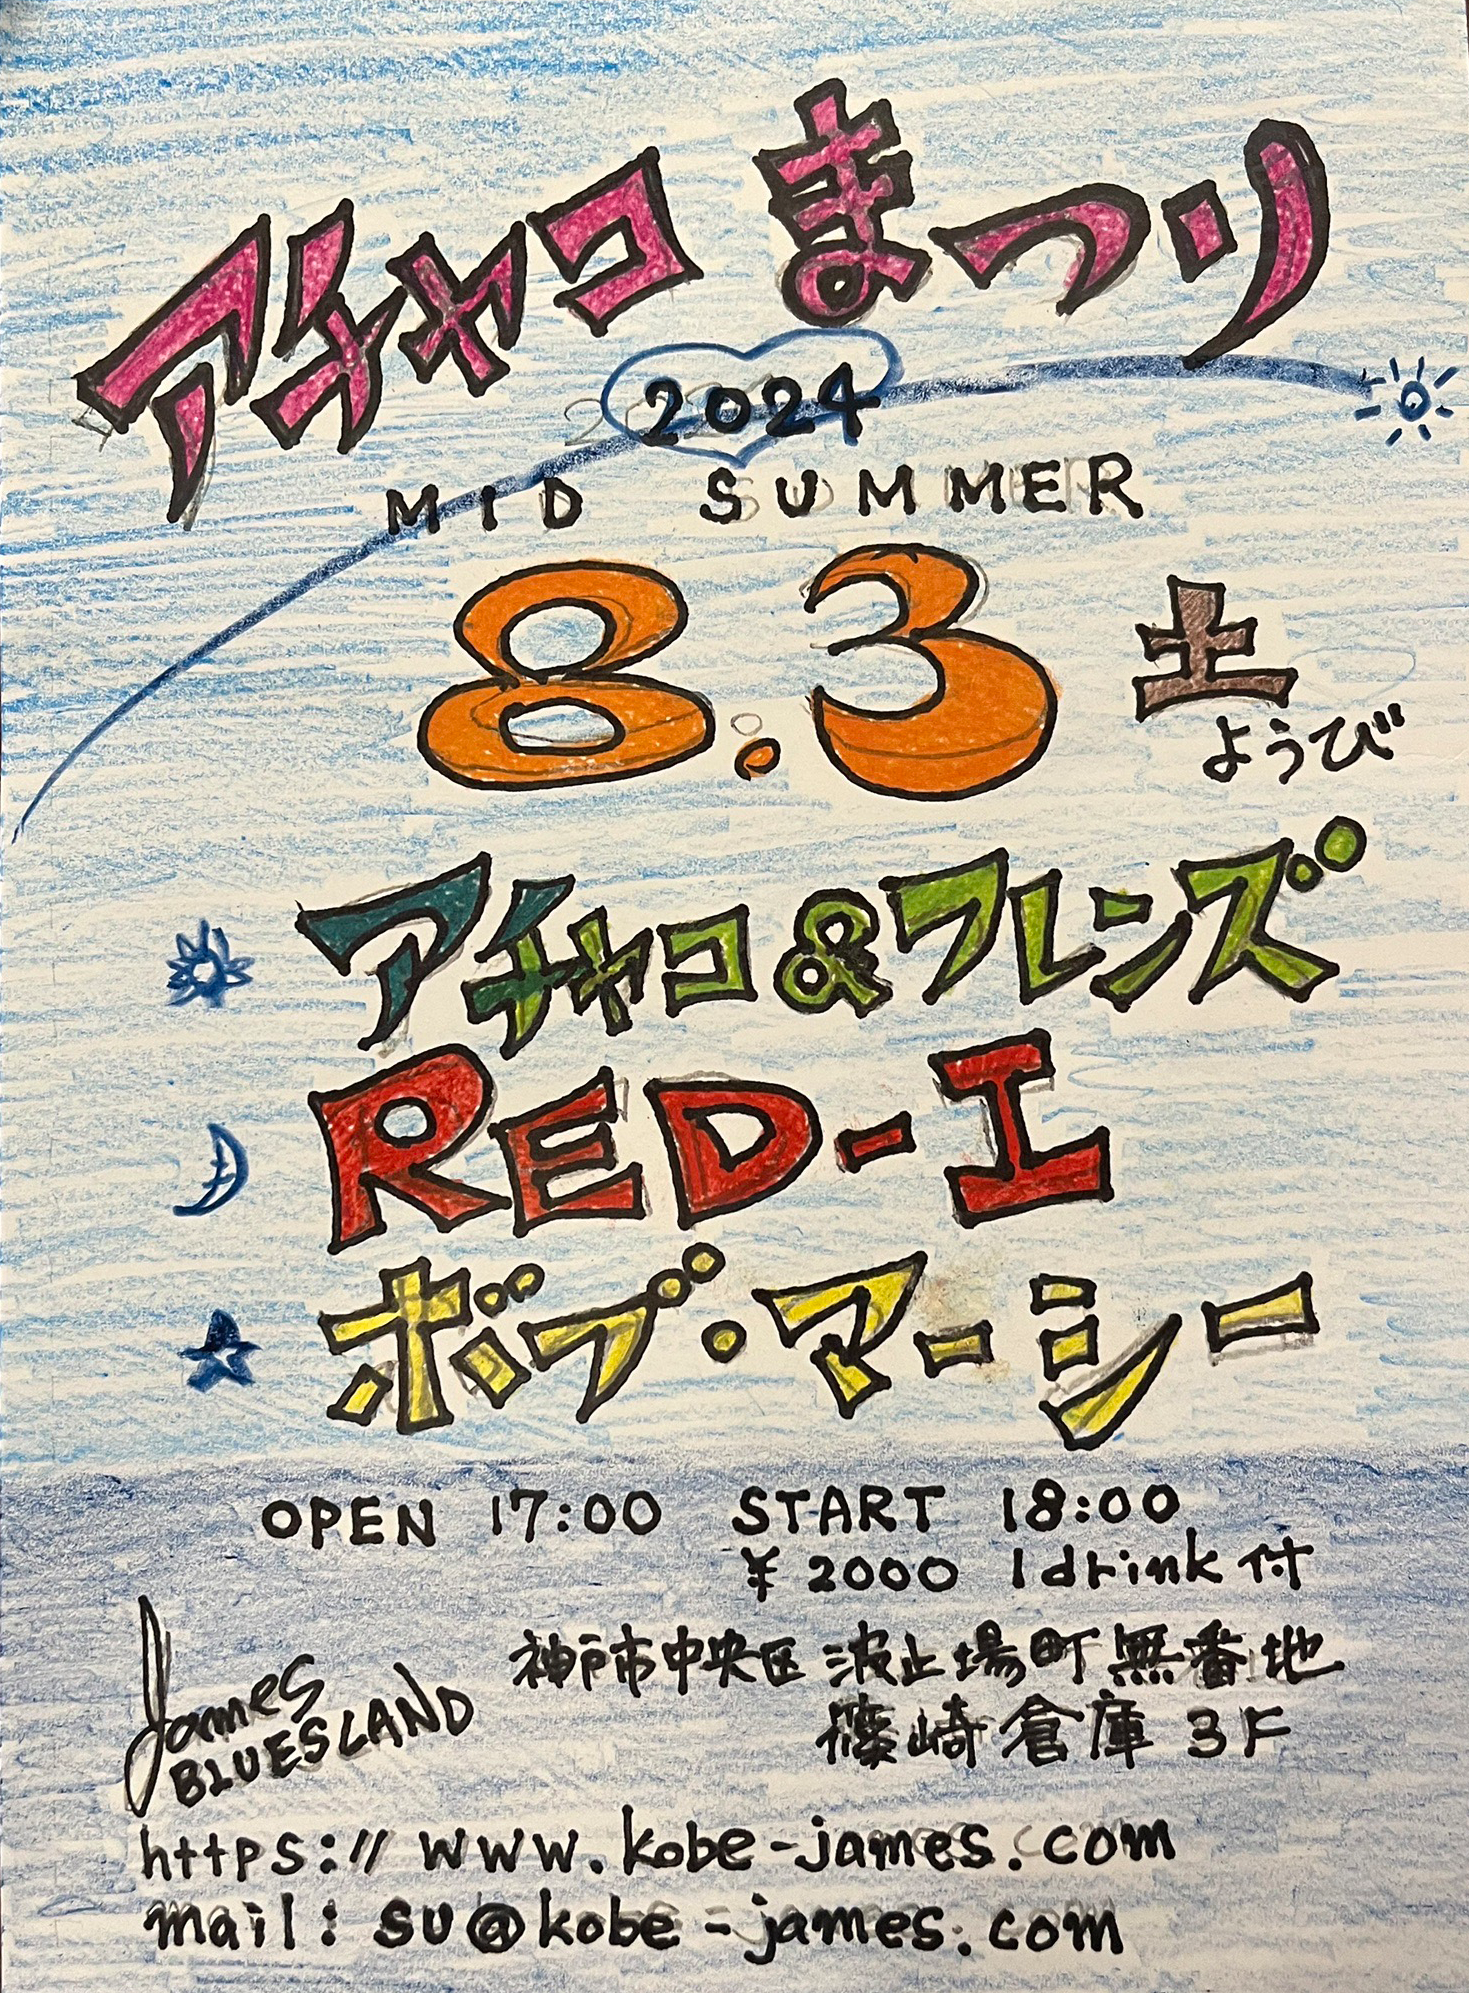 アチャコ まつり
2024
MID SUMMER
8.3 土
ようび
アチャコ&フレンズ
RED-I
ボブ・マーシー
OPEN 17:00 START 18:00
¥2000 1drink付
神戸市中央区 波止場町無番地
篠崎倉庫 3F
James
BLUESLAND
https://www.kobe-james.com
mail: su@kobe-james.com